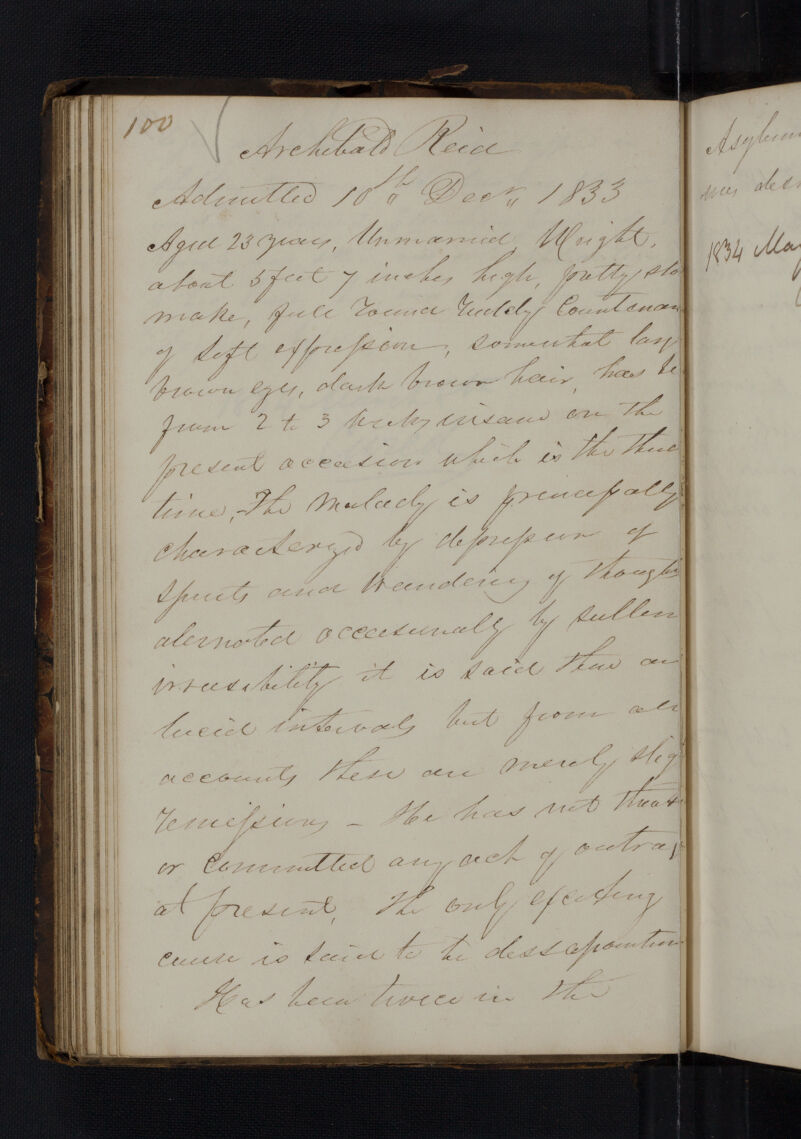 100
Archibald Reid
Admitted 10th Decr 1833
Aged 23 years, Unmarried, Wright,
about 5 feet 7 inches high, pretty sto
make, full round ruddy Countenan
of soft expression, somewhat larg
brown eyes, dark brown hair, has be
from 2 to 3 weeks insane on the
present occasion which is the third
time, The malady is principally
characterized by depression of
spirits and wandering of thought
alernated occasionally by sullen
irrasibility it is said there are
lucid intervals but from all
accounts these are merely slig
remissions - He has not threat
or committed any act of outrag
at present, The only exciting
cause is said to be dissapointm
Has been twice in the
Asylum
was
1834 May